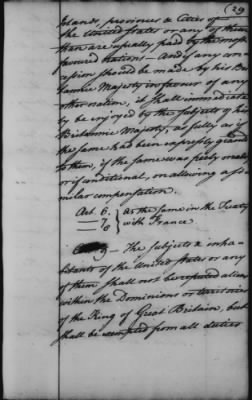 (29
Islands, provinces & Cities of
the United States or any of them
than are usually paid by the most
favoured Nations — And if any con-
cession should be made by his Bri-
tannic Majesty in favour of any
other nation, it shall immediate-
ly be enjoyed by the subjects of his
Britannic Majesty, as fully as if
the same had been expressly granted
to them, if the same was freely made
or if conditional, on allowing a si-
milar compensation.
Art. 6.
— 7.
8
As the same in the Treaty
with France
9 — The subjects & inha-
bitants of the United States or any
of them shall not be reputed aliens
within the Dominions or territories
of the King of Great Britain, but
shall be exempted from all duties